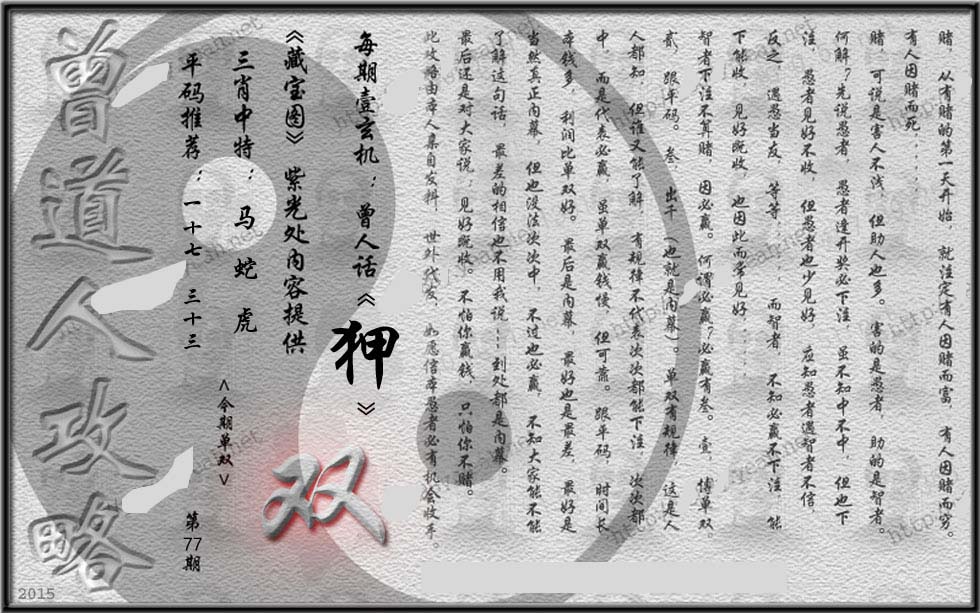 赌，从有赌的第一天开始，就注定有人因赌而富，有人因赌而穷。
有人因赌而死．．．．．．
赌，可说是害人不浅，但助人也多。害的是愚者，助的是智者。
何解？先说愚者，愚者逢开奖必下注，虽不知中不中，但也下
注，愚者见好不收，但愚者也少见好，应知愚者遇智者不信，
反之，遇愚当友，等等．．．．．．而智者，不知必赢不下注，能
下能收，见好既收，也因此而常见好．．．．．．
智者下注不算赌，因必赢。何谓必赢？必赢有叁。壹，博单双，
贰，跟平码。叁，出千（也就是内幕）。单双有规律，这是人
人都知，但谁又能了解，有规律不代表次次都能下注，次次都
中，而是代表必赢，虽单双赢钱慢，但可靠。跟平码，时间长，
本钱多，利润比单双好。最后是内幕，最好也是最差，最好是
当然真正内幕，但也没法次次中，不过也必赢，不知大家能不能
了解这句话，最差的相信也不用我说…到处都是内幕。
最后还是对大家说：见好既收。不怕你赢钱，只怕你不赌。
此攻略由本人亲自发料，世外代发，如愿信本愚者必有机会收手。
每期壹玄机：曾人话《狎》
《藏宝图》紫光处内容提供
三肖中特：马 蛇 虎
平码推荐：一十七 三十三
<今期单双>
双
第77期
曾道人攻略
2015